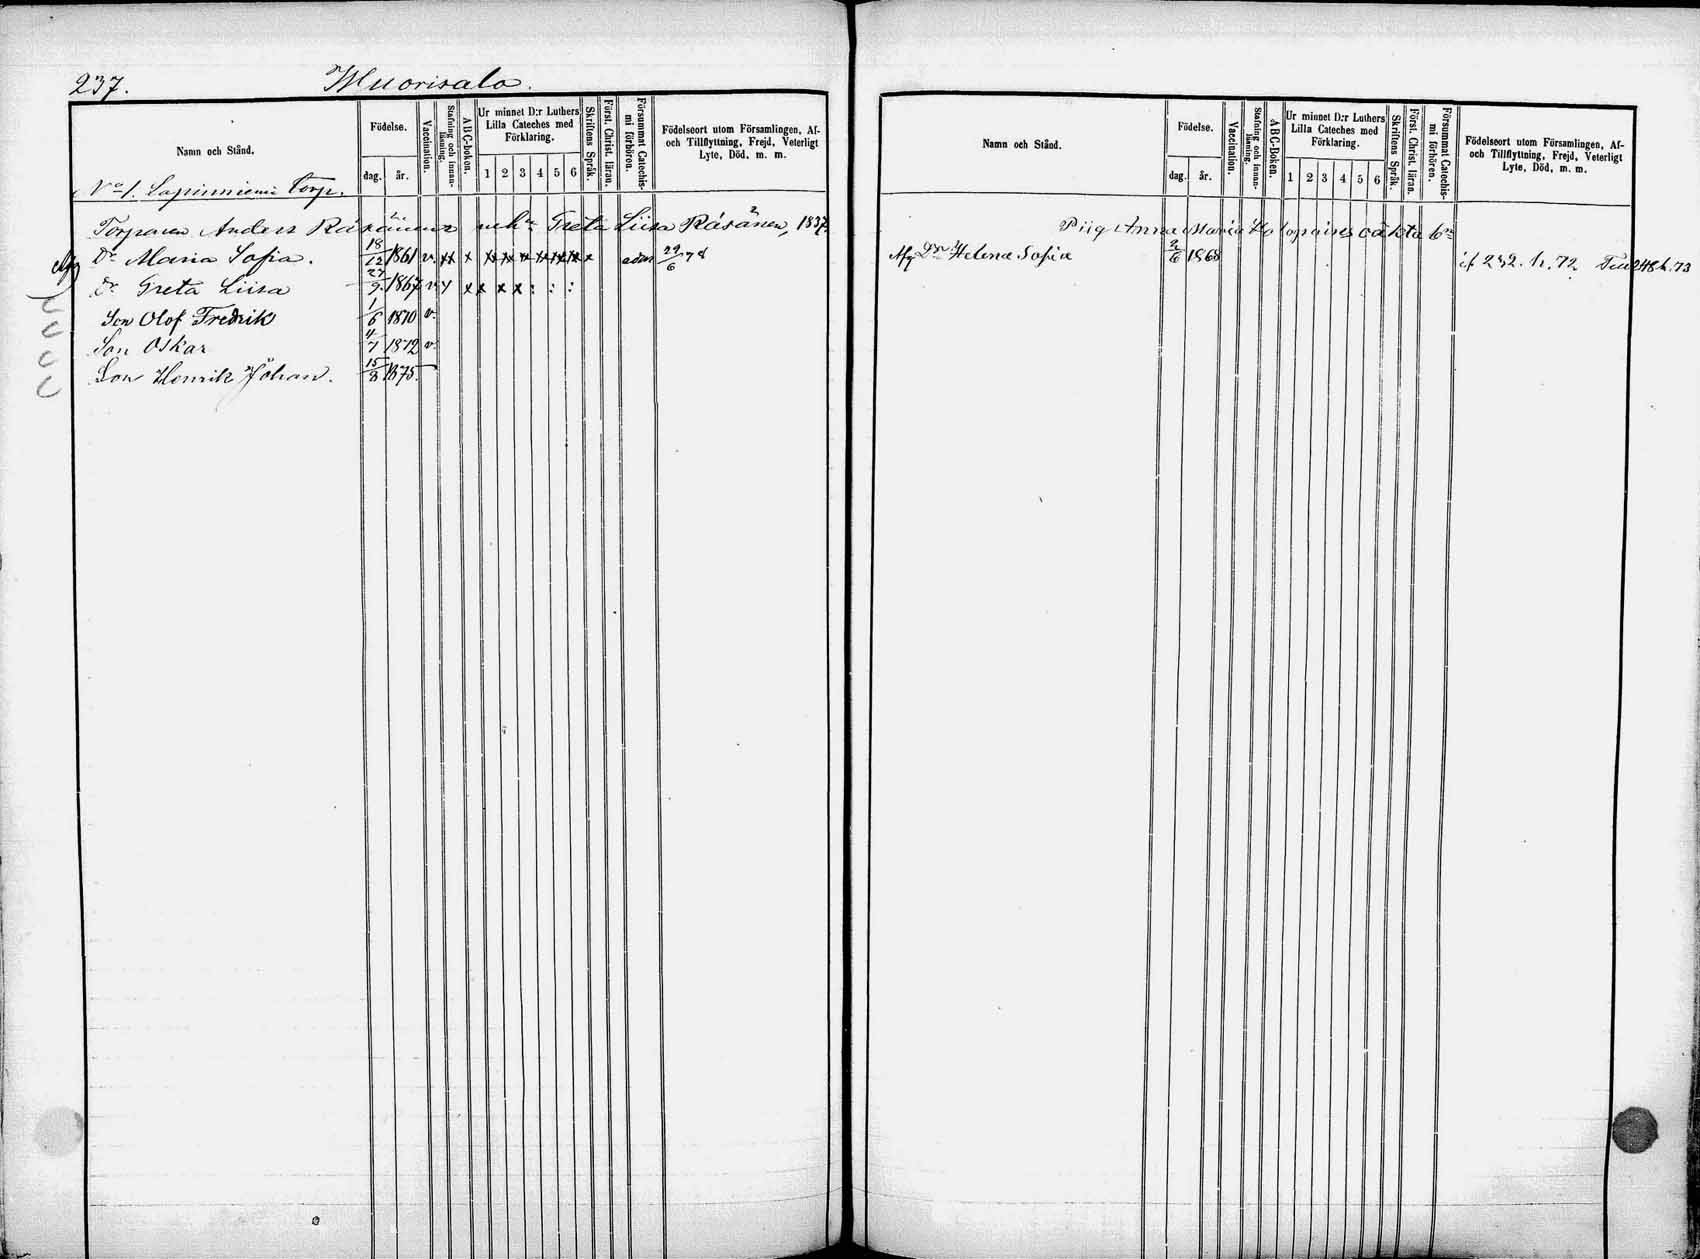 237. Muorisalo.
Namn och Stånd.
Födelse.
dag. år.
Vaccination.
Stafning och innanläsning.
ABC-boken.
Ur minnet D:r Luthers Lilla Cateches med Förklaring.
1 2 3 4 5 6
Skriftens Språk.
Först. Christ. läran.
Försummat Catechismi förhören.
Födelseort utom Församlingen, Af- och Tillflyttning, Frejd, Veterligt Lyte, Död, m. m.
No 1. Lapinniemi Torp.
Torparen Anders Räsänens och Greta Liisa Räsänen, 1837
Dr Maria Sofia. 18/12 1861 v. xx x xx xx xx xx xx xx x adm 29/6 78
Dr Greta Liisa 1867 v. x x x x : : :
Son Olof Fredrik 1/6 1870 v.
Son Oskar 4/7 1872 v.
Son Henrik Johan. 15/8 1875.
Namn och Stånd.
Födelse.
dag. år.
Vaccination.
Stafning och innanläsning.
ABC-Boken.
Ur minnet D:r Luthers Lilla Cateches med Förklaring.
1 2 3 4 5 6
Skriftens Språk.
Först. Christ. läran.
Försummat Catechismi förhören.
Födelseort utom Församlingen, Af- och Tillflyttning, Frejd, Veterligt Lyte, Död, m. m.
Piig Anna Maria Holopaines oäkta bn
Afg Dr Helena Sofia 2/6 1868 if 232. h. 72. Till 248 h. 73